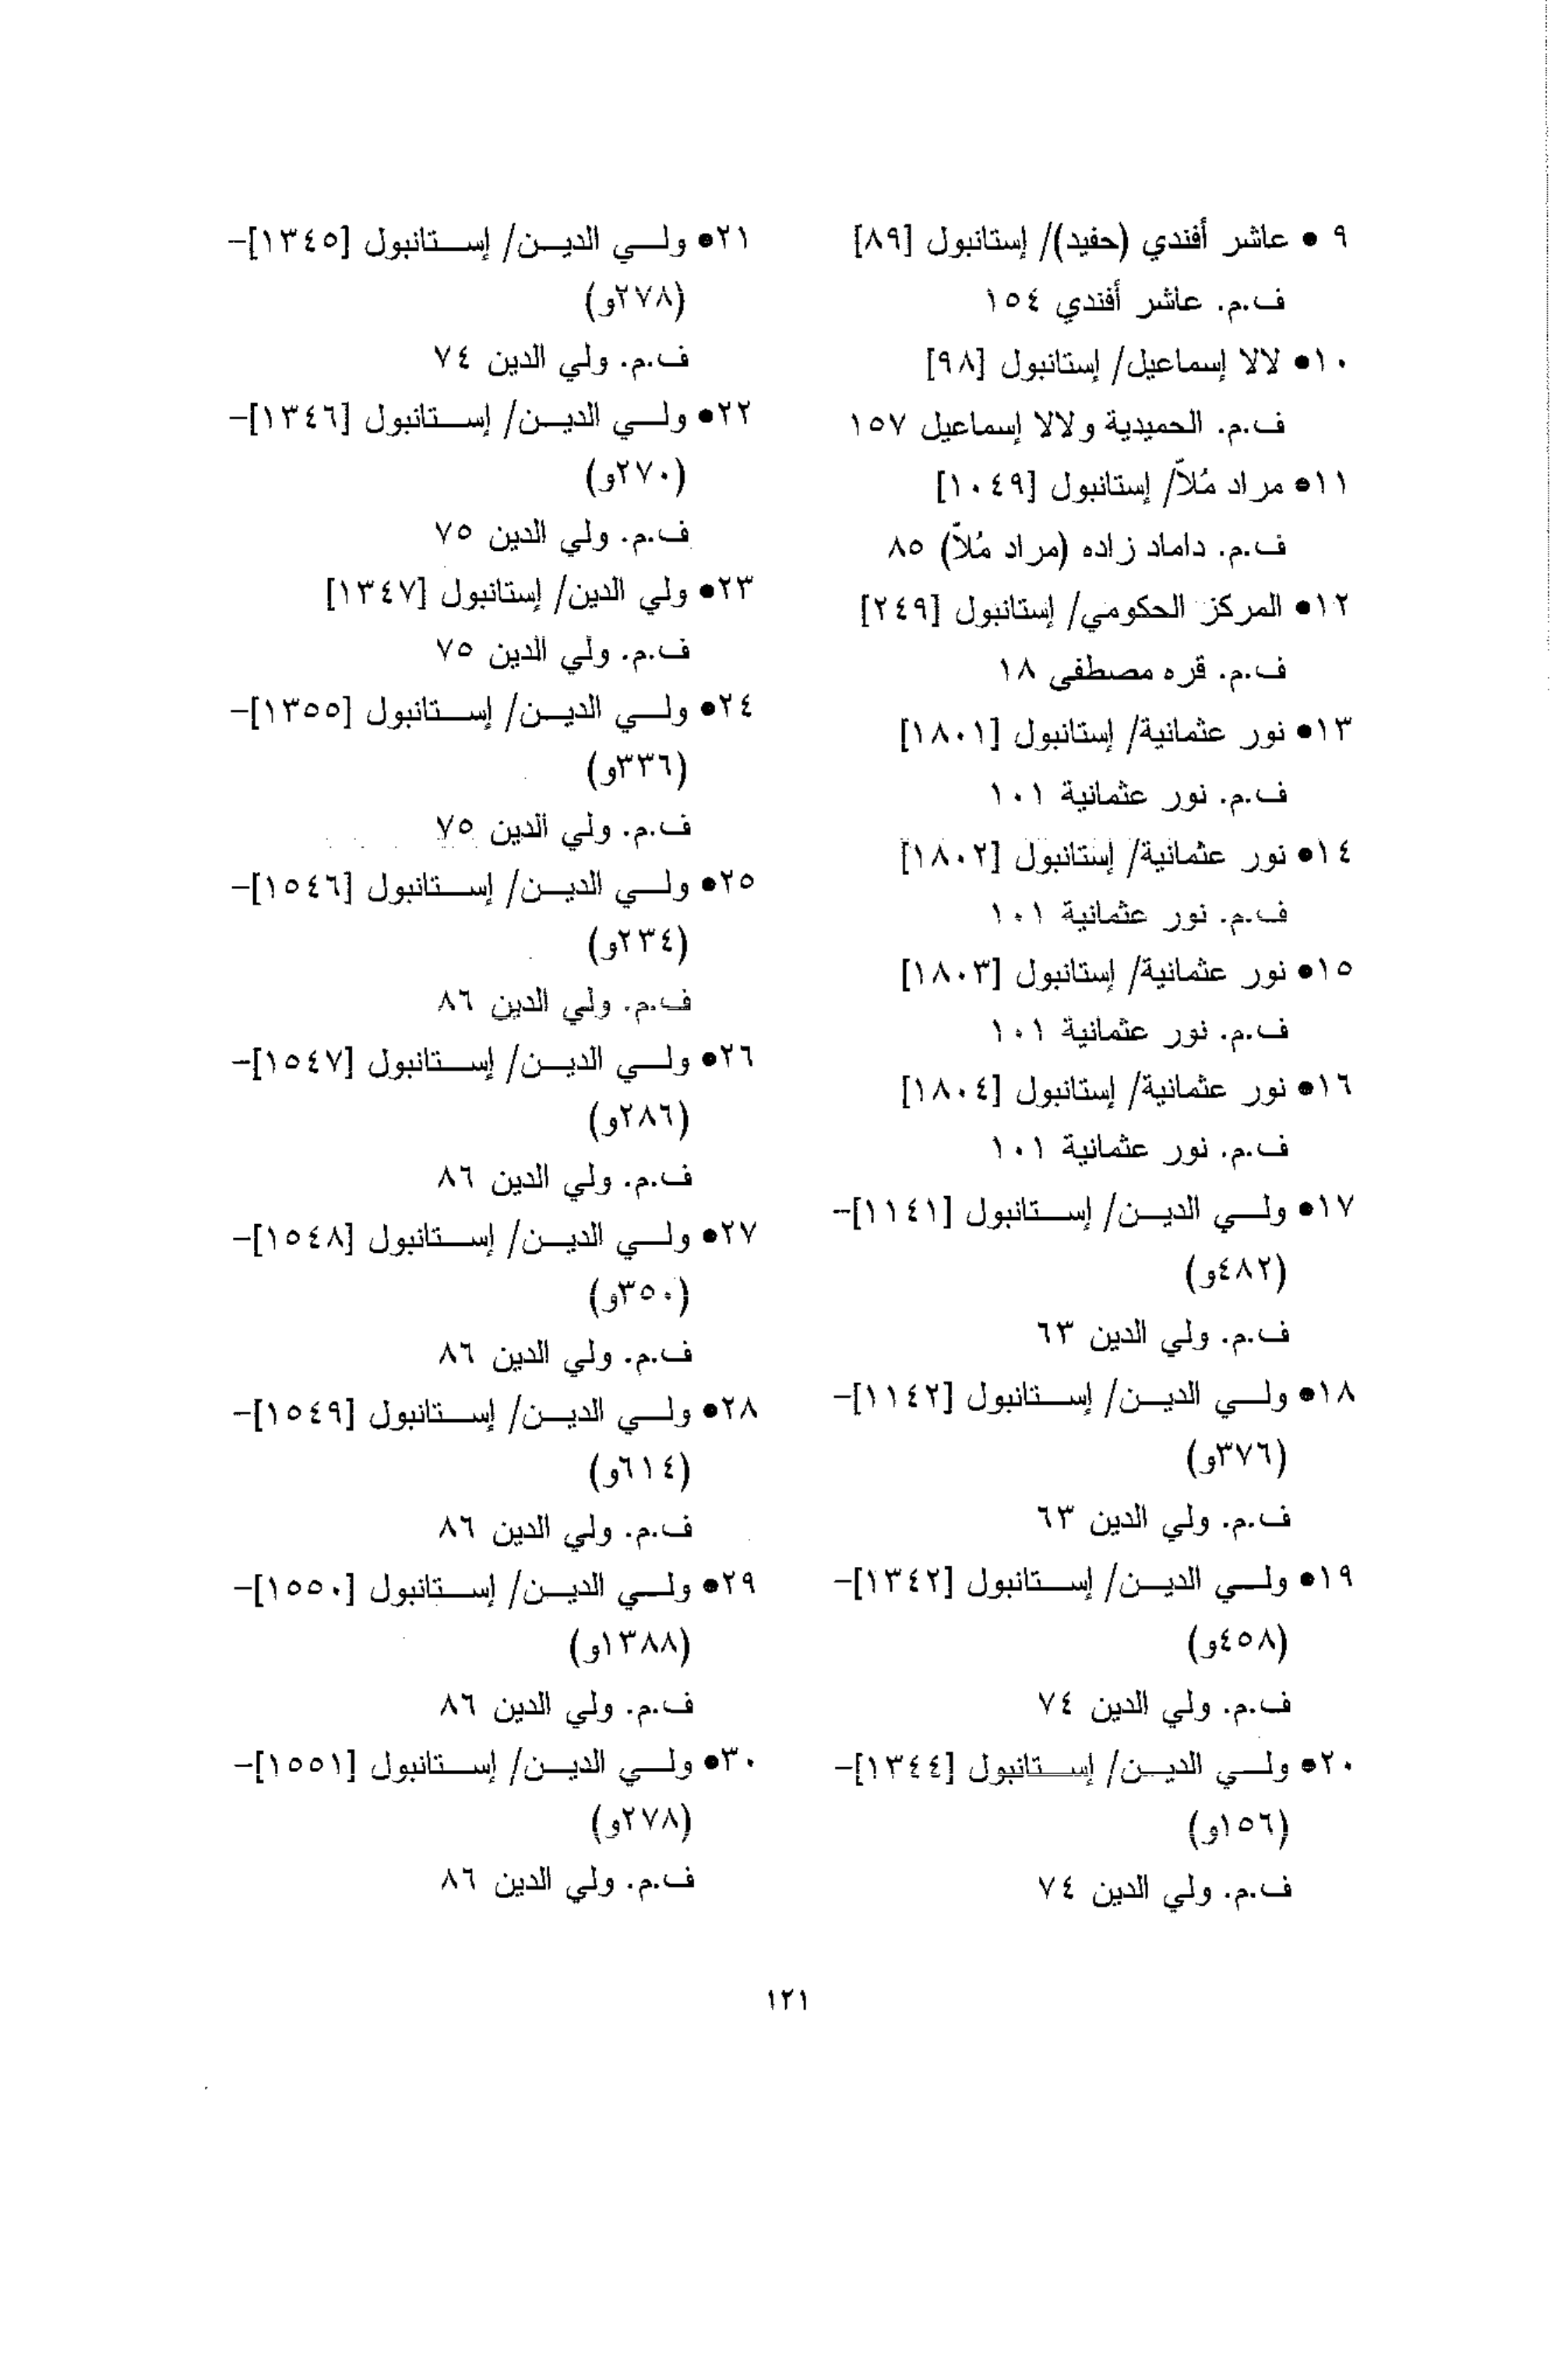 ٩ • عاشر أفندي (حفيد)/ إستانبول [٨٩]
ف.م. عاشر أفندي ١٥٤
١٠• لالا إسماعيل/ إستانبول [٩٨]
ف.م. الحميدية ولالا إسماعيل ١٥٧
١١• مراد مُلاّ/ إستانبول [١٠٤٩]
ف.م. داماد زاده (مراد مُلاّ) ٨٥
١٢• المركز الحكومي/ إستانبول [٢٤٩]
ف.م. قره مصطفى ١٨
١٣• نور عثمانية/ إستانبول [١٨٠١]
ف.م. نور عثمانية ١٠١
١٤• نور عثمانية/ إستانبول [١٨٠٢]
ف.م. نور عثمانية ١٠١
١٥• نور عثمانية/ إستانبول [١٨٠٣]
ف.م. نور عثمانية ١٠١
١٦• نور عثمانية/ إستانبول [١٨٠٤]
ف.م. نور عثمانية ١٠١
١٧• ولي الدين/ إستانبول [١١٤١]-
(٤٨٢و)
ف.م. ولي الدين ٦٣
١٨• ولي الدين/ إستانبول [١١٤٢]-
(٣٧٦و)
ف.م. ولي الدين ٦٣
١٩• ولي الدين/ إستانبول [١٣٤٢]-
(٤٥٨و)
ف.م. ولي الدين ٧٤
٢٠• ولي الدين/ إستانبول [١٣٤٤]-
(١٥٦و)
ف.م. ولي الدين ٧٤
٢١• ولي الدين/ إستانبول [١٣٤٥]-
(٢٧٨و)
ف.م. ولي الدين ٧٤
٢٢• ولي الدين/ إستانبول [١٣٤٦]-
(٢٧٠و)
ف.م. ولي الدين ٧٥
٢٣• ولي الدين/ إستانبول [١٣٤٧]
ف.م. ولي الدين ٧٥
٢٤• ولي الدين/ إستانبول [١٣٥٥]-
(٣٣٦و)
ف.م. ولي الدين ٧٥
٢٥• ولي الدين/ إستانبول [١٥٤٦]-
(٢٣٤و)
ف.م. ولي الدين ٨٦
٢٦• ولي الدين/ إستانبول [١٥٤٧]-
(٢٨٦و)
ف.م. ولي الدين ٨٦
٢٧• ولي الدين/ إستانبول [١٥٤٨]-
(٣٥٠و)
ف.م. ولي الدين ٨٦
٢٨• ولي الدين/ إستانبول [١٥٤٩]-
(٦١٤و)
ف.م. ولي الدين ٨٦
٢٩• ولي الدين/ إستانبول [١٥٥٠]-
(١٣٨٨و)
ف.م. ولي الدين ٨٦
٣٠• ولي الدين/ إستانبول [١٥٥١]-
(٢٧٨و)
ف.م. ولي الدين ٨٦
١٢١